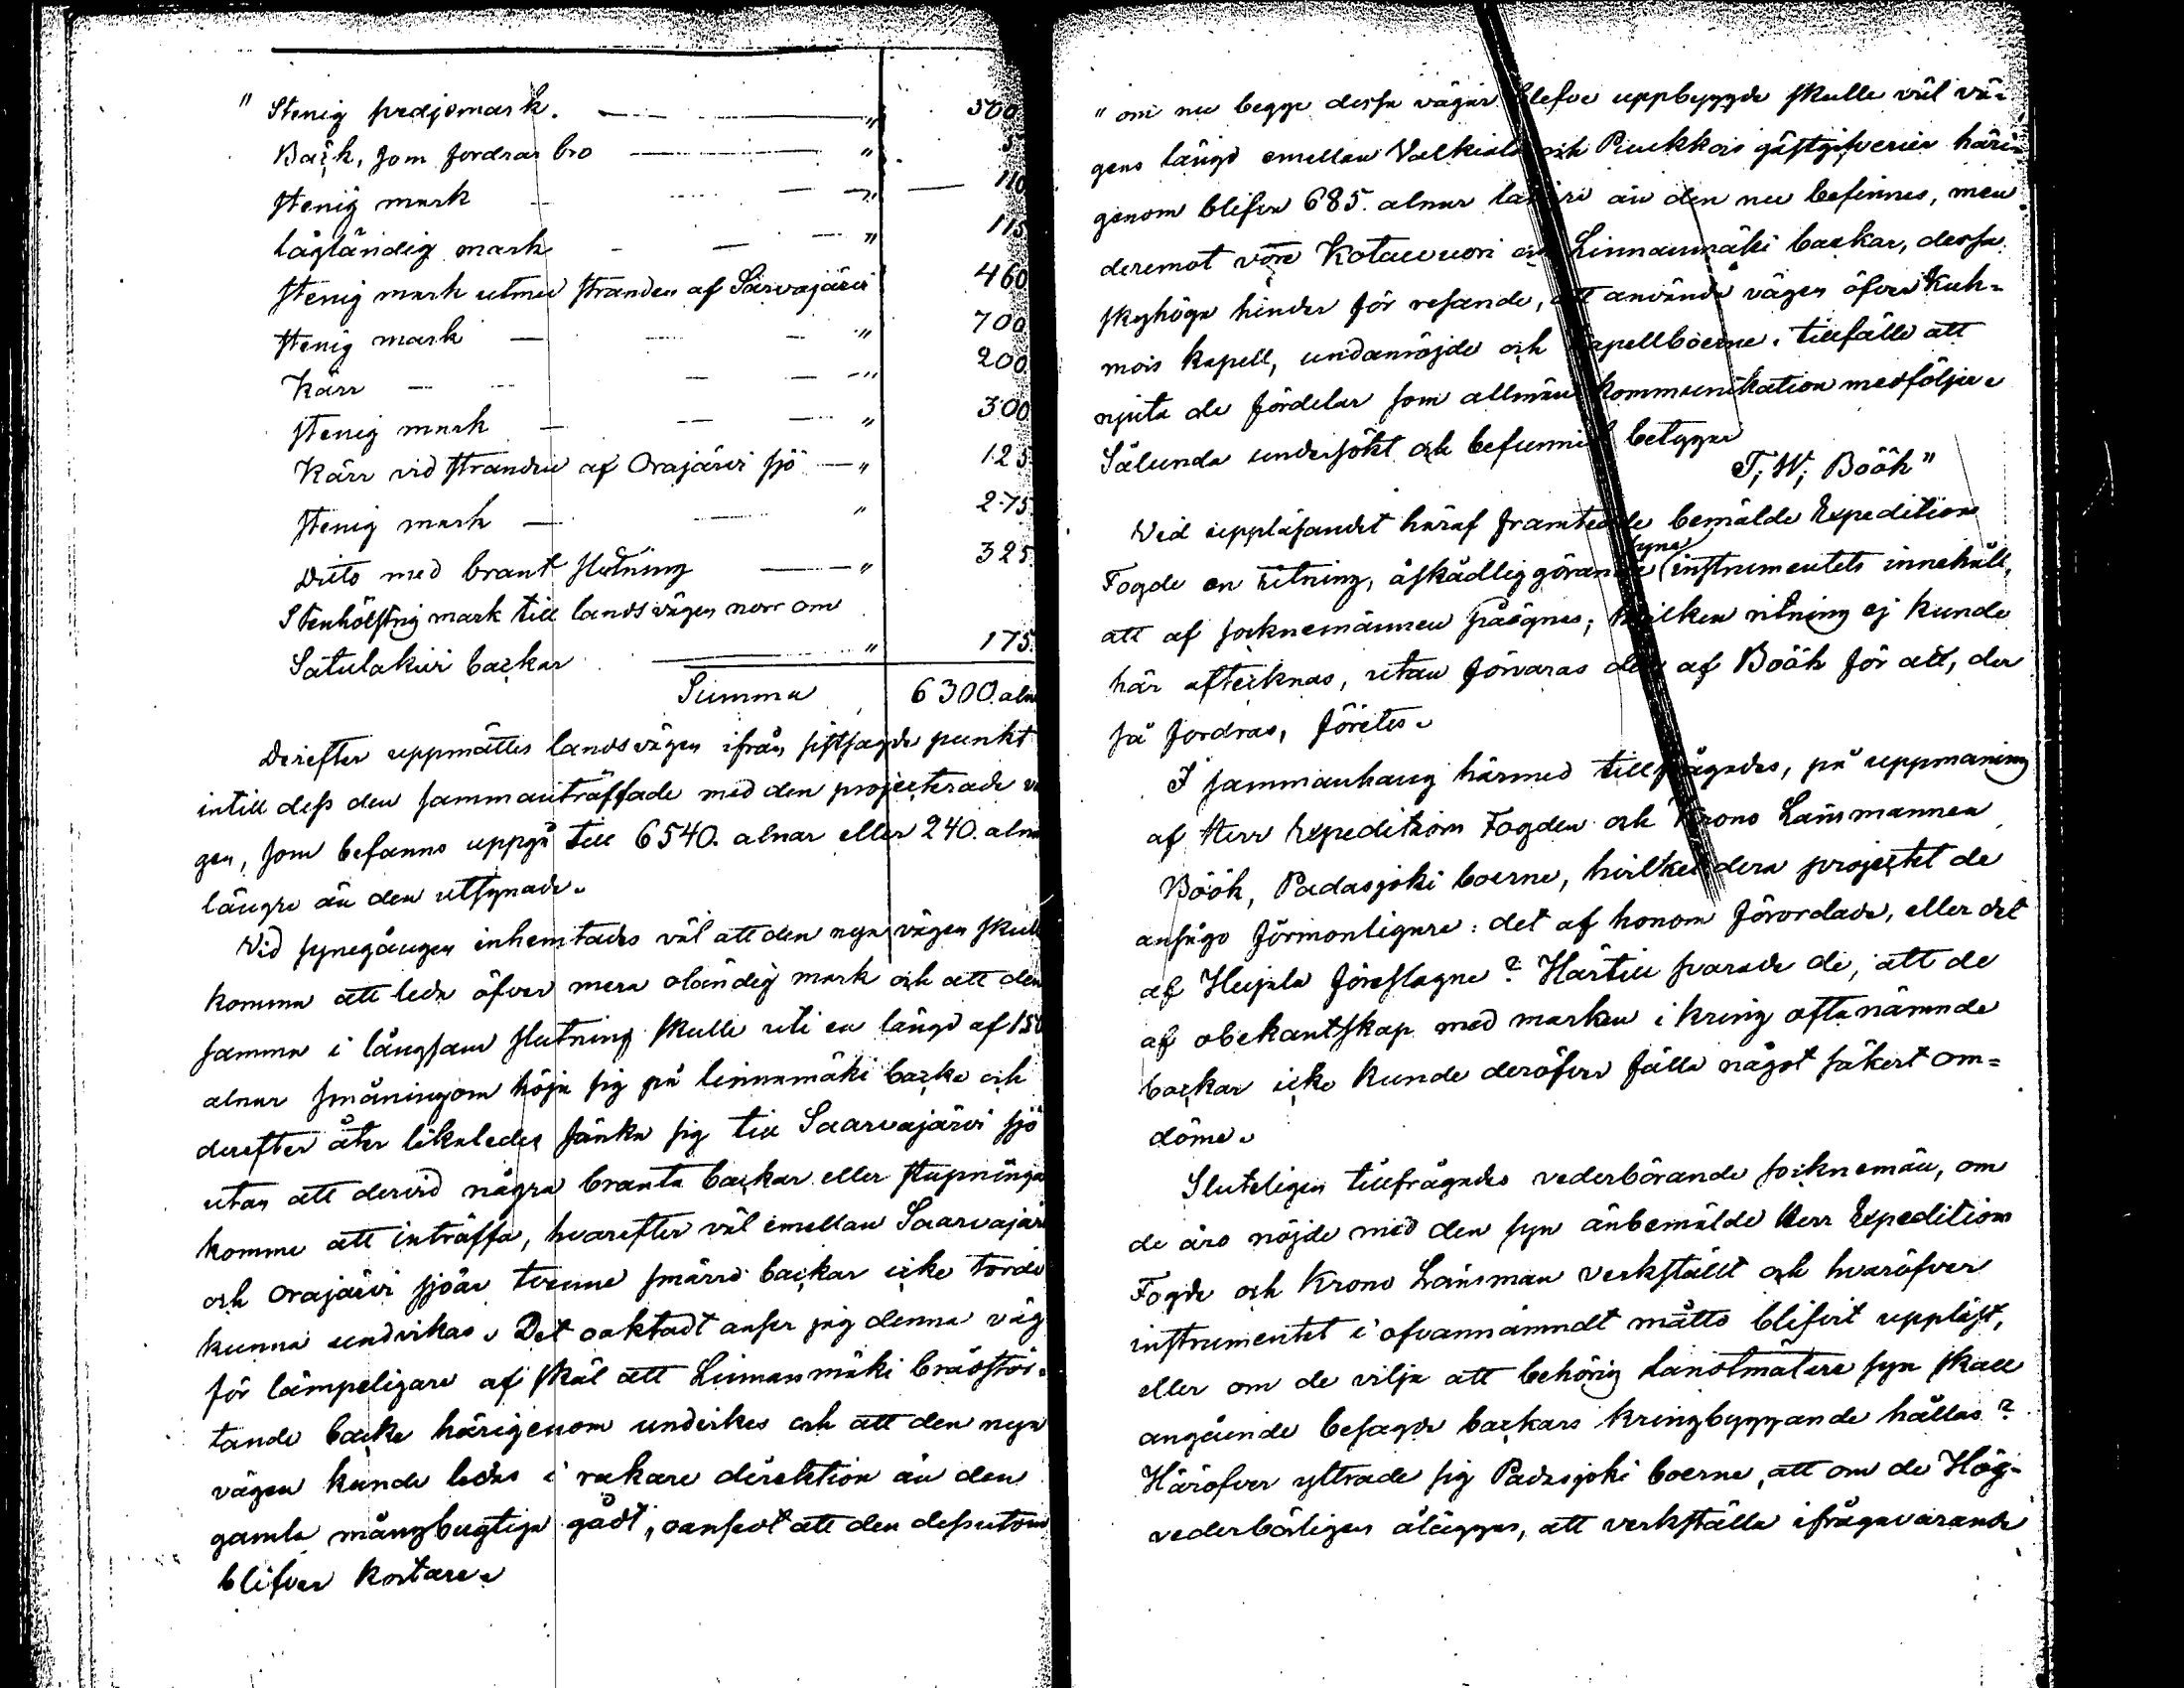 " Stenig svedjemark. — — " 500
Bäck, som fordrar bro — " 5
stenig mark — — " — 110
lågländig mark — — " 115
stenig mark utmed stranden af Särvajärvi 460
stenig mark — — " 700
Kärr — — — " 200
stenig mark — — " 300
Kärr vid stranden af Orajärvi sjö — " 125
stenig mark — — " 275
Dito med brant slutning — " 325
Stenhölstrig mark till landsvägen norr om
Satulakivi backar — " 175
Summa 6300. aln
Derefter uppmättes landsvägen ifrån sistsagde punkt
intill dess den sammanträffade med den projecterade vä
gen, som befanns uppgå till 6540. alnar eller 240. alna
längre än den utsynade.
Vid synegången inhemtades väl att den nya vägen skul
komma att leda öfver mera oländig mark och att den
samma i långsam slutning skulle uti en längd af 150
alnar småningom höja sig på linnamäki backe och
derefter åter likaledes sänka sig till Saarvajärvi sjö
utan att dervid några branta backar eller stupninga
komme att inträffa, hvarefter väl emellan Saarvajär
och Orajärvi sjöar tvenne smärre backar icke torde
kunna undvikas. Det oaktadt anser jag denna väg
för lämpeligare af skäl att Linnanmäki brådstör-
tande backe härigenom undvikes och att den nya
vägen kunde ledas i rakare direktion än den
gamla mångbugtiga gådt, oansedt att den dessutom
blifver kortare.
" om nu begge dessa vägar blefve uppbyggde skulle väl vä-
gens längd emellan Valkiala och Puukkois gästgifverier häri-
genom blifva 685. alnar längre än den nu befinnes, men
deremot vore Kotavuori och Linnanmäki backar, dessa
skyhöga hinder för resande, att använda vägen öfver Kuh-
mois kapell, undanröjde och kapellboerne. tillfälle att
njuta de fördelar som allmän kommunikation medföljer.
Sålunda undersökt och befunnit betygar
T; W; Bööh"
Vid uppläsandet häraf framtedde bemälde Expeditions
Fogde en ritning, åskådliggörande syne instrumentets innehåll,
att af socknemännen påsågnes; hvilken ritning ej kunde
här aftecknas, utan förvaras den af Bööh för att, der
så fordras, företes.
I sammanhang härmed tillfrågades, på uppmaning
af Herr Expeditions Fogden och Krono Länsmannen
Bööh, Padasjoki boerne, hvilketdera projectet de
ansågo förmonligare: det af honom förordade, eller det
af Heijala föreslagne? Härtill svarade de, att de
af obekantskap med marken i kring oftanämnde
backar icke kunde deröfver fälla något säkert om-
döme.
Sluteligen tillfrågades vederbörande socknemän, om
de äro nöjde med den syn änbemälde Herr Expeditions
Fogde och Krono Länsman verkställt och hvaröfver
instrumentet i ofvannämndt måtto blifvit uppläst,
eller om de vilja att behörig Landtmätare syn skall
angående besagde backars kringbyggande hållas?
Häröfver yttrade sig Padasjoki boerne, att om de Hög-
vederbörligen åläggas, att verkställa ifrågavarande